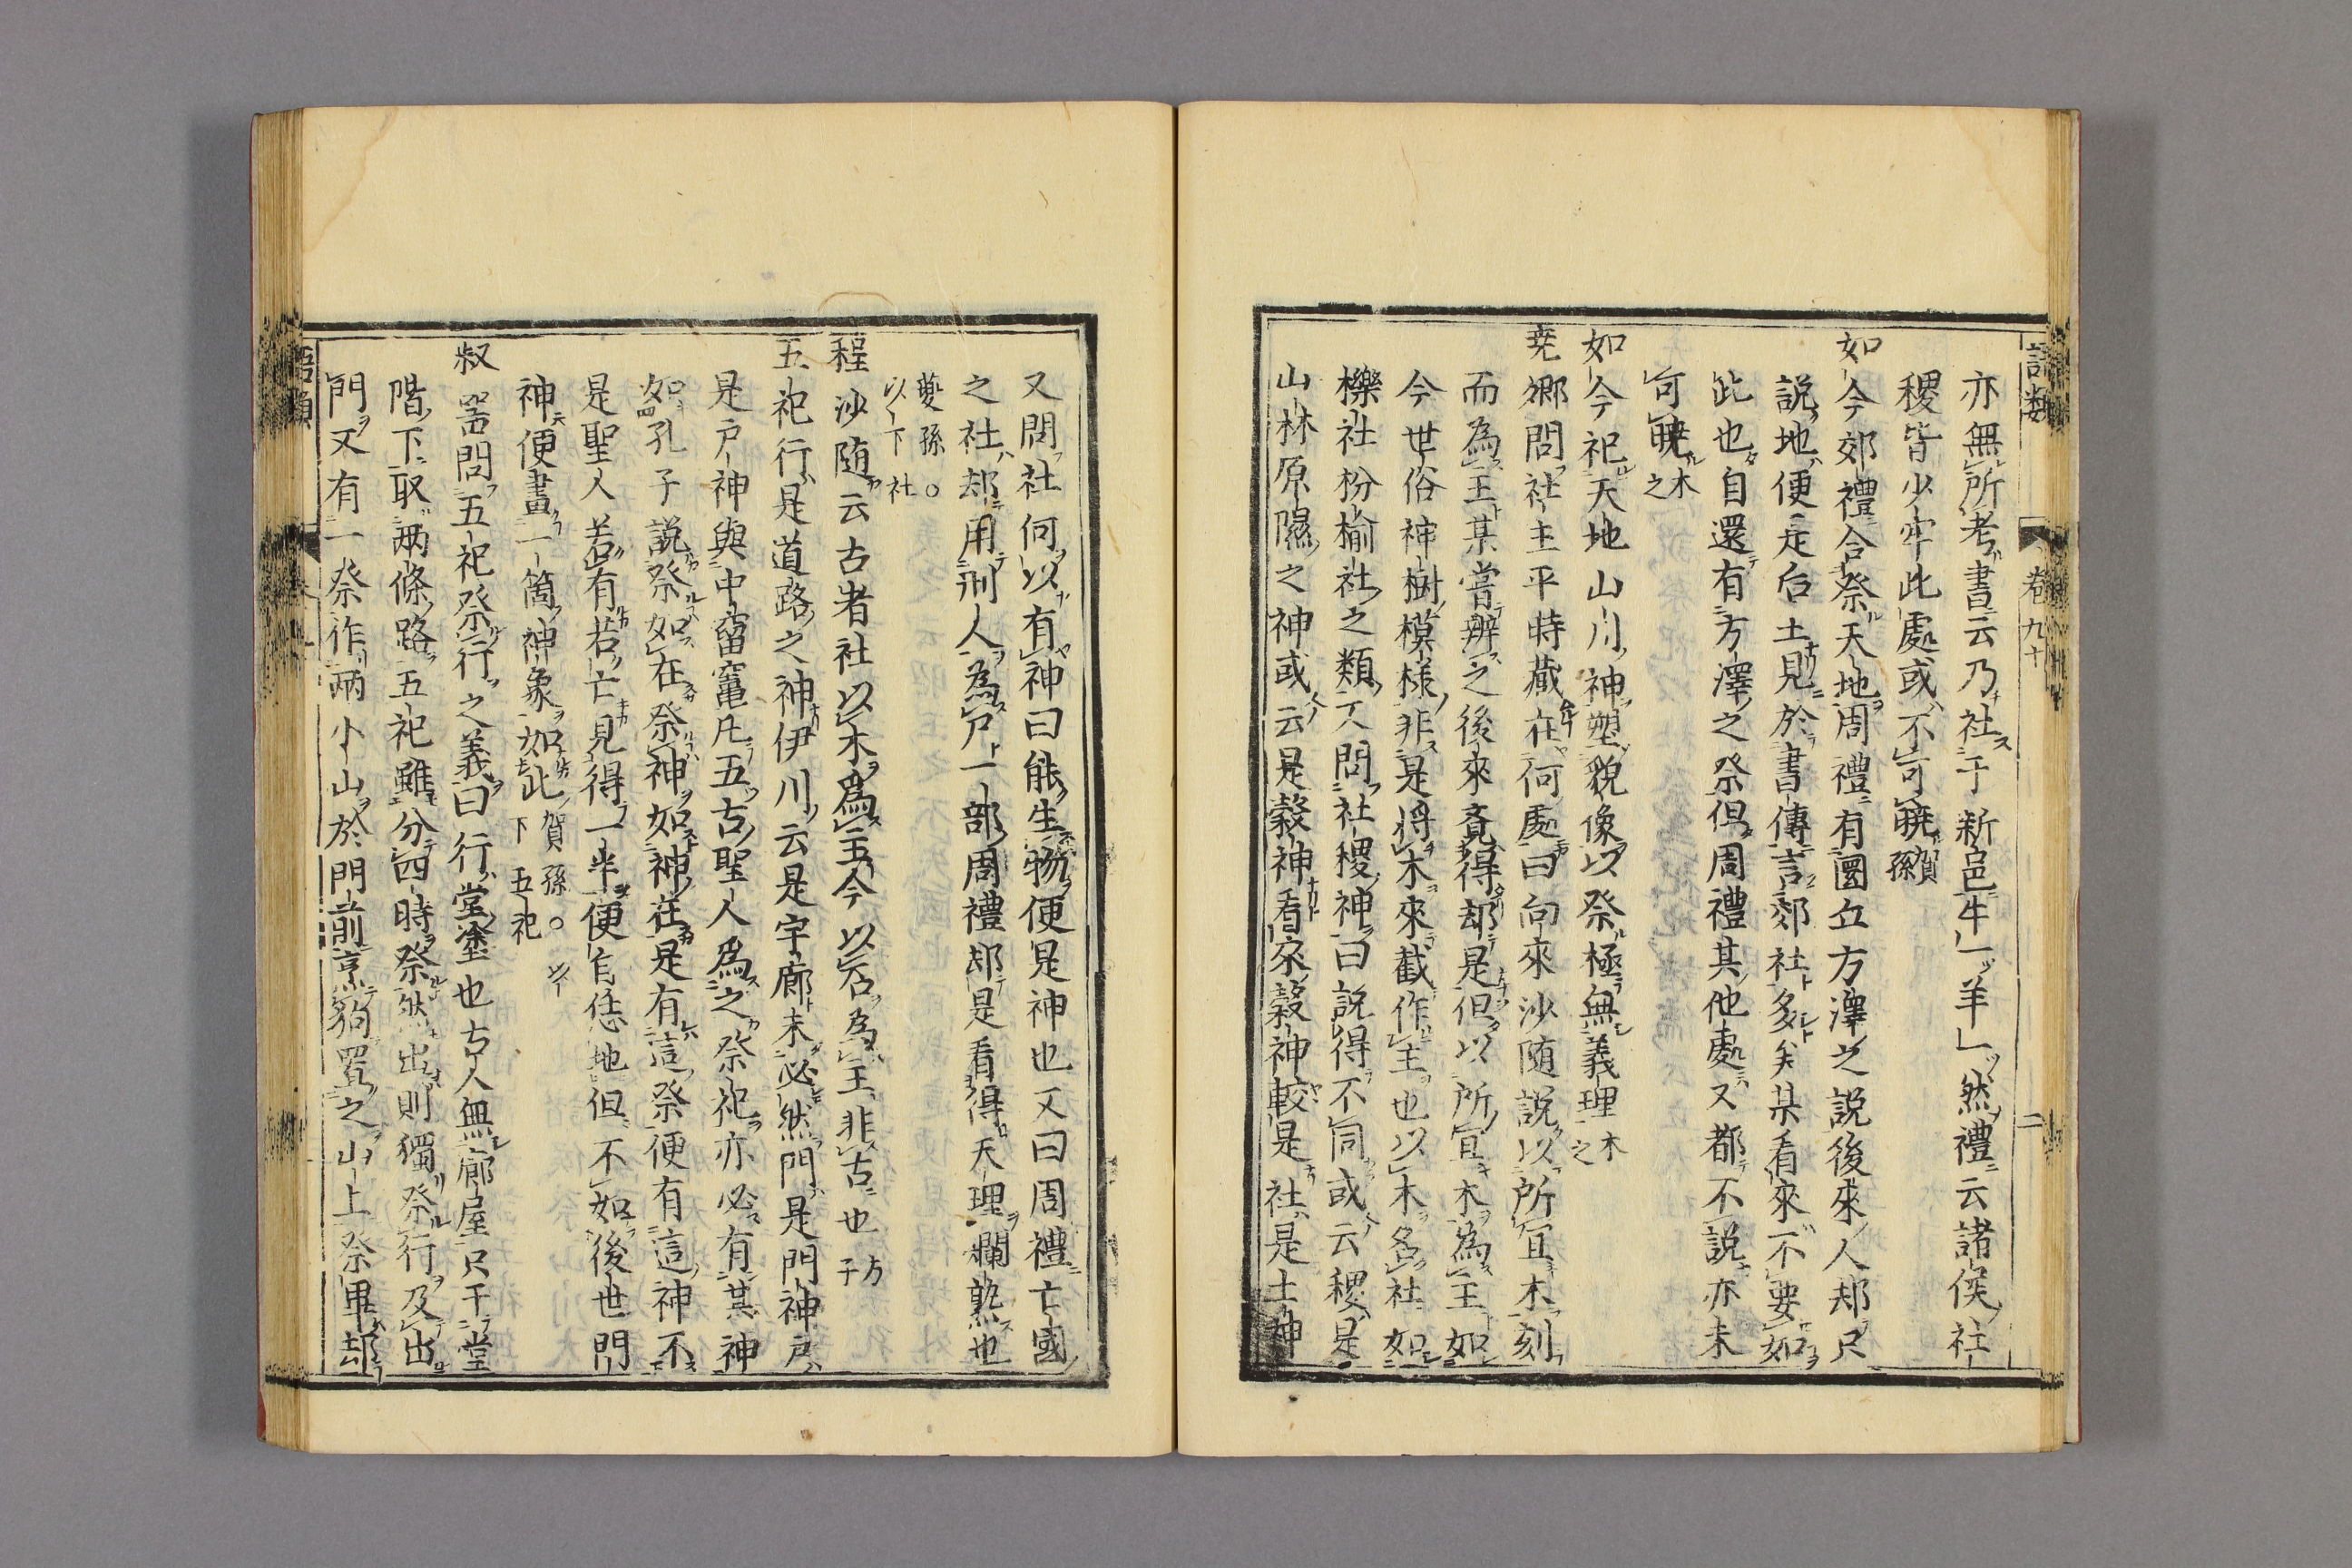 語類 卷九十 二
亦無所考書云乃社于新邑牛一羊一然禮云諸侯社
稷皆少牢此處或不可曉賀孫
如今郊禮合祭天地周禮有圜丘方澤之說後來人却只
說地便是后土見於書傳言郊社多矣某看來不要如
此也自還有方澤之祭但周禮其他處又都不說亦未
可曉木之
如今祀天地山川神塑貌像以祭極無義理木之
堯卿問社主平時藏在何處曰向來沙随說以所宜木刻
而為主某嘗辨之後來覔得却是但以所宜木為主如
今世俗神樹模様非是將木來截作主也以木名社如
櫟社枌榆社之類又問社稷神曰說得不同或云稷是
山林原隰之神或云是穀神看來穀神較是社是土神
又問社何以有神曰能生物便是神也又曰周禮亡國
之社却用刑人為尸一部周禮却是看得天理爛熟也
夔孫○
以下社
程沙随云古者社以木為主今以石為主非古也方子
五祀行是道路之神伊川云是宇廊未必然門是門神戶
是戶神與中霤竈凡五古聖人為之祭祀亦必有其神
如孔子說祭如在祭神如神在是有這祭便有這神不
是聖人若有若亡見得一半便自恁地但不如後世門
神便畫一箇神象如此賀孫○以下五祀
叔器問五祀祭行之義曰行堂塗也古人無廊屋只于堂
階下取兩條路五祀雖分四時祭然出則獨祭行及出
門又有一祭作兩小山於門前烹狗置之山上祭畢却
語類